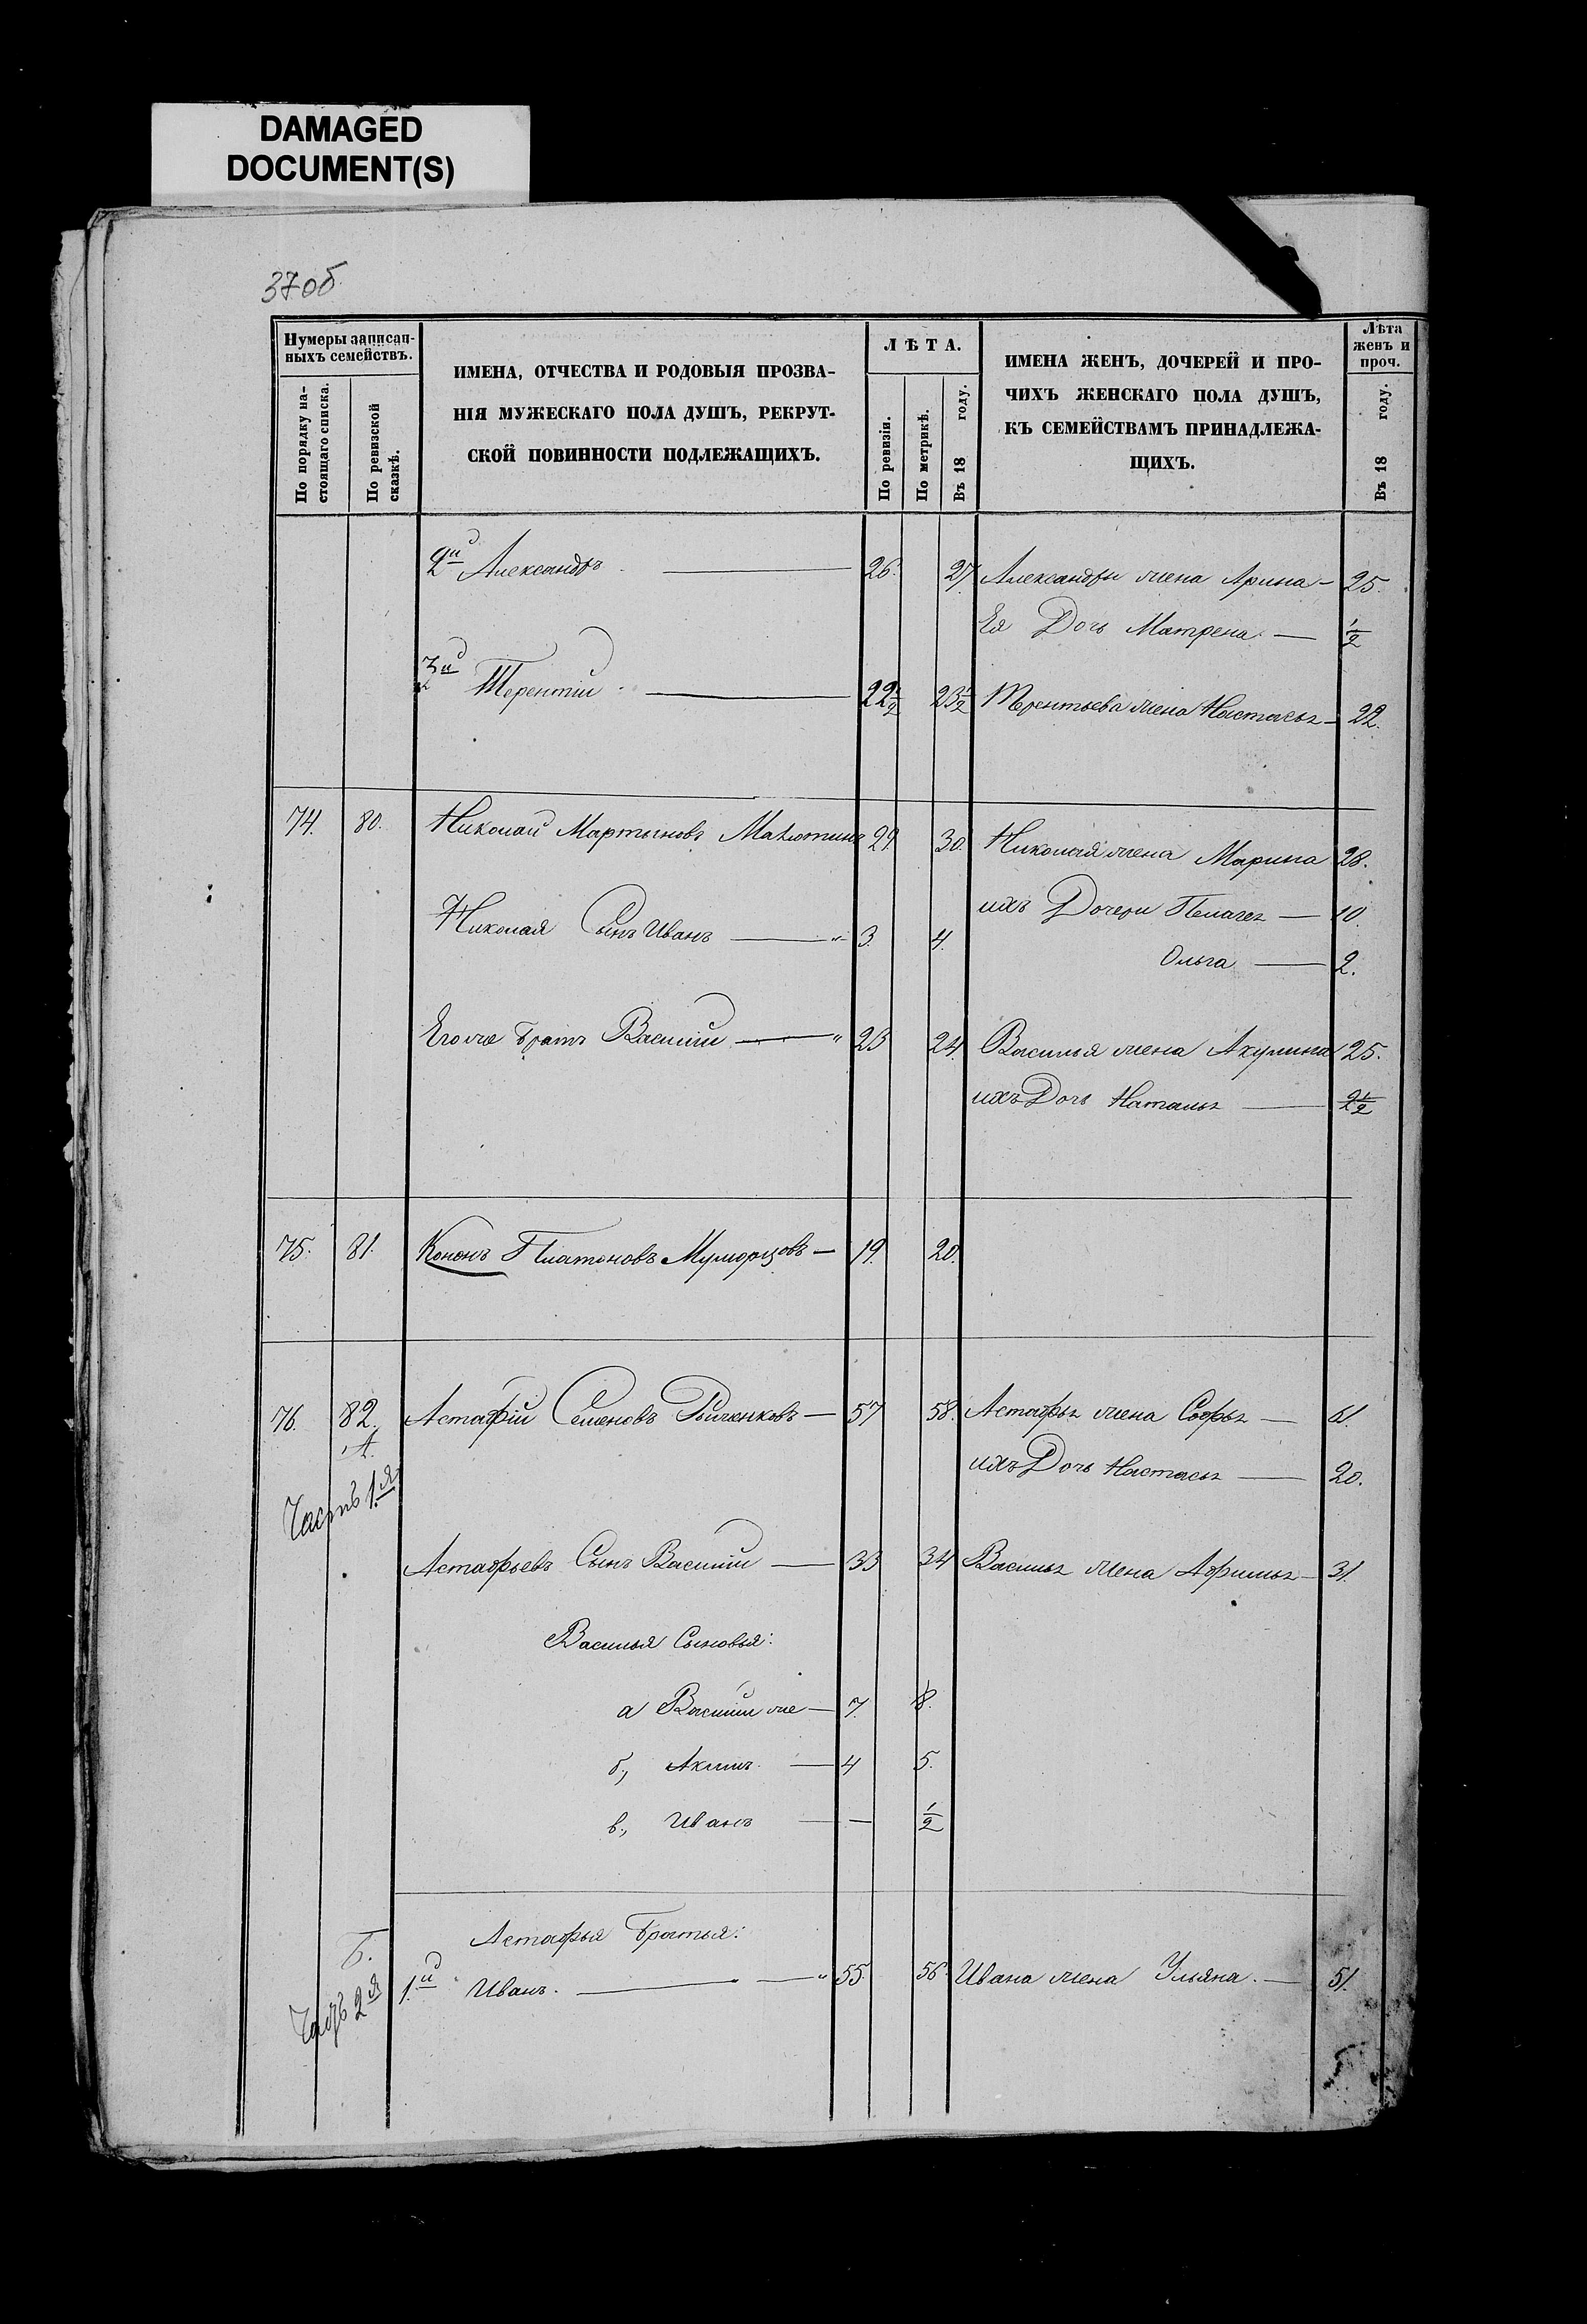 DAMAGED
DOCUMENT(S)
37 об.
Нумеры записан-
ныхъ семействъ.
По порядку на-
стоящаго списка.
По ревизской
сказкѣ.
ИМЕНА, ОТЧЕСТВА И РОДОВЫЯ ПРОЗВА-
НІЯ МУЖЕСКАГО ПОЛА ДУШЪ, РЕКРУТ-
СКОЙ ПОВИННОСТИ ПОДЛЕЖАЩИХЪ.
ЛѢТА.
По ревизіи.
По метрикѣ.
Въ 18 году.
ИМЕНА ЖЕНЪ, ДОЧЕРЕЙ И ПРО-
ЧИХЪ ЖЕНСКАГО ПОЛА ДУШЪ,
КЪ СЕМЕЙСТВАМЪ ПРИНАДЛЕЖА-
ЩИХЪ.
Лѣта
женъ и
проч.
Въ 18 году.
2й Александръ — 26. 27. Александры жена Арина — 25.
Ея Дочь Матрена — 1/2
3й Терентій — 22 1/2 23 1/2 Терентьева жена Настасья — 22.
74. 80. Николай Мартыновъ 29. 30. Николая жена Марина 28.
ихъ Дочери Пелагея — 10.
Николая Сынъ Иванъ — 3. 4.
Ольга — 2.
Его же братъ Василій — 23 24. Василья жена Акулина 25.
ихъ Дочь Наталья — 2 1/2
75. 81. Кононъ Платоновъ — 19. 20.
76. 82. Астафій Семеновъ — 57 58. Астафья жена Софья — 61.
А.
ихъ Дочь Настасья — 20.
Часть 1я
Астафьевъ Сынъ Василій — 33 34 Василья жена Афимья — 31.
Василья Сыновья:
а Василій же — 7. 8.
б., Акимъ — 4 5.
в., Иванъ — — 1/2
Астафья Братья:
Б.
1й Иванъ. — 55. 56. Ивана жена Ульяна. — 51.
Часть 2я